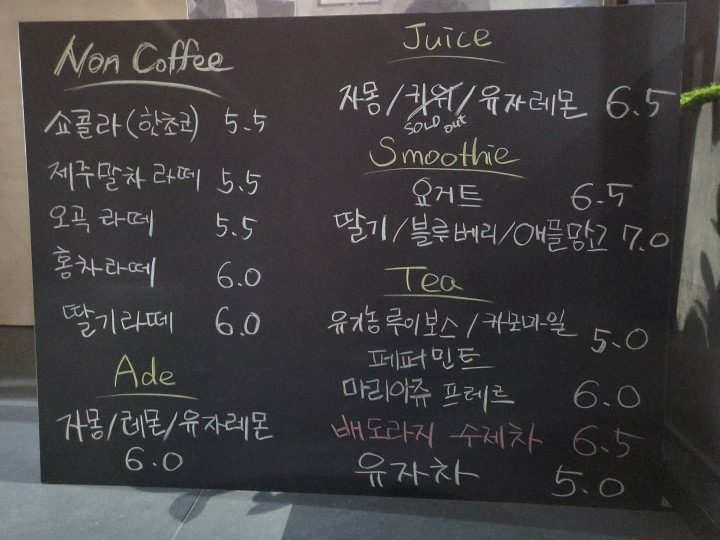 Non Coffee
쇼콜라(한초코) 5.5
제주말차라떼 5.5
오곡라떼 5.5
홍차라떼 6.0
딸기라떼 6.0
Ade
자몽/레몬/유자레몬
6.0
Juice
자몽/키위/유자레몬 6.5
SOLD out
Smoothie
요거트 6.5
딸기/블루베리/애플망고 7.0
Tea
유기농루이보스/카모마일 5.0
페퍼민트
마리아쥬프레르 6.0
배도라지 수제차 6.5
유자차 5.0